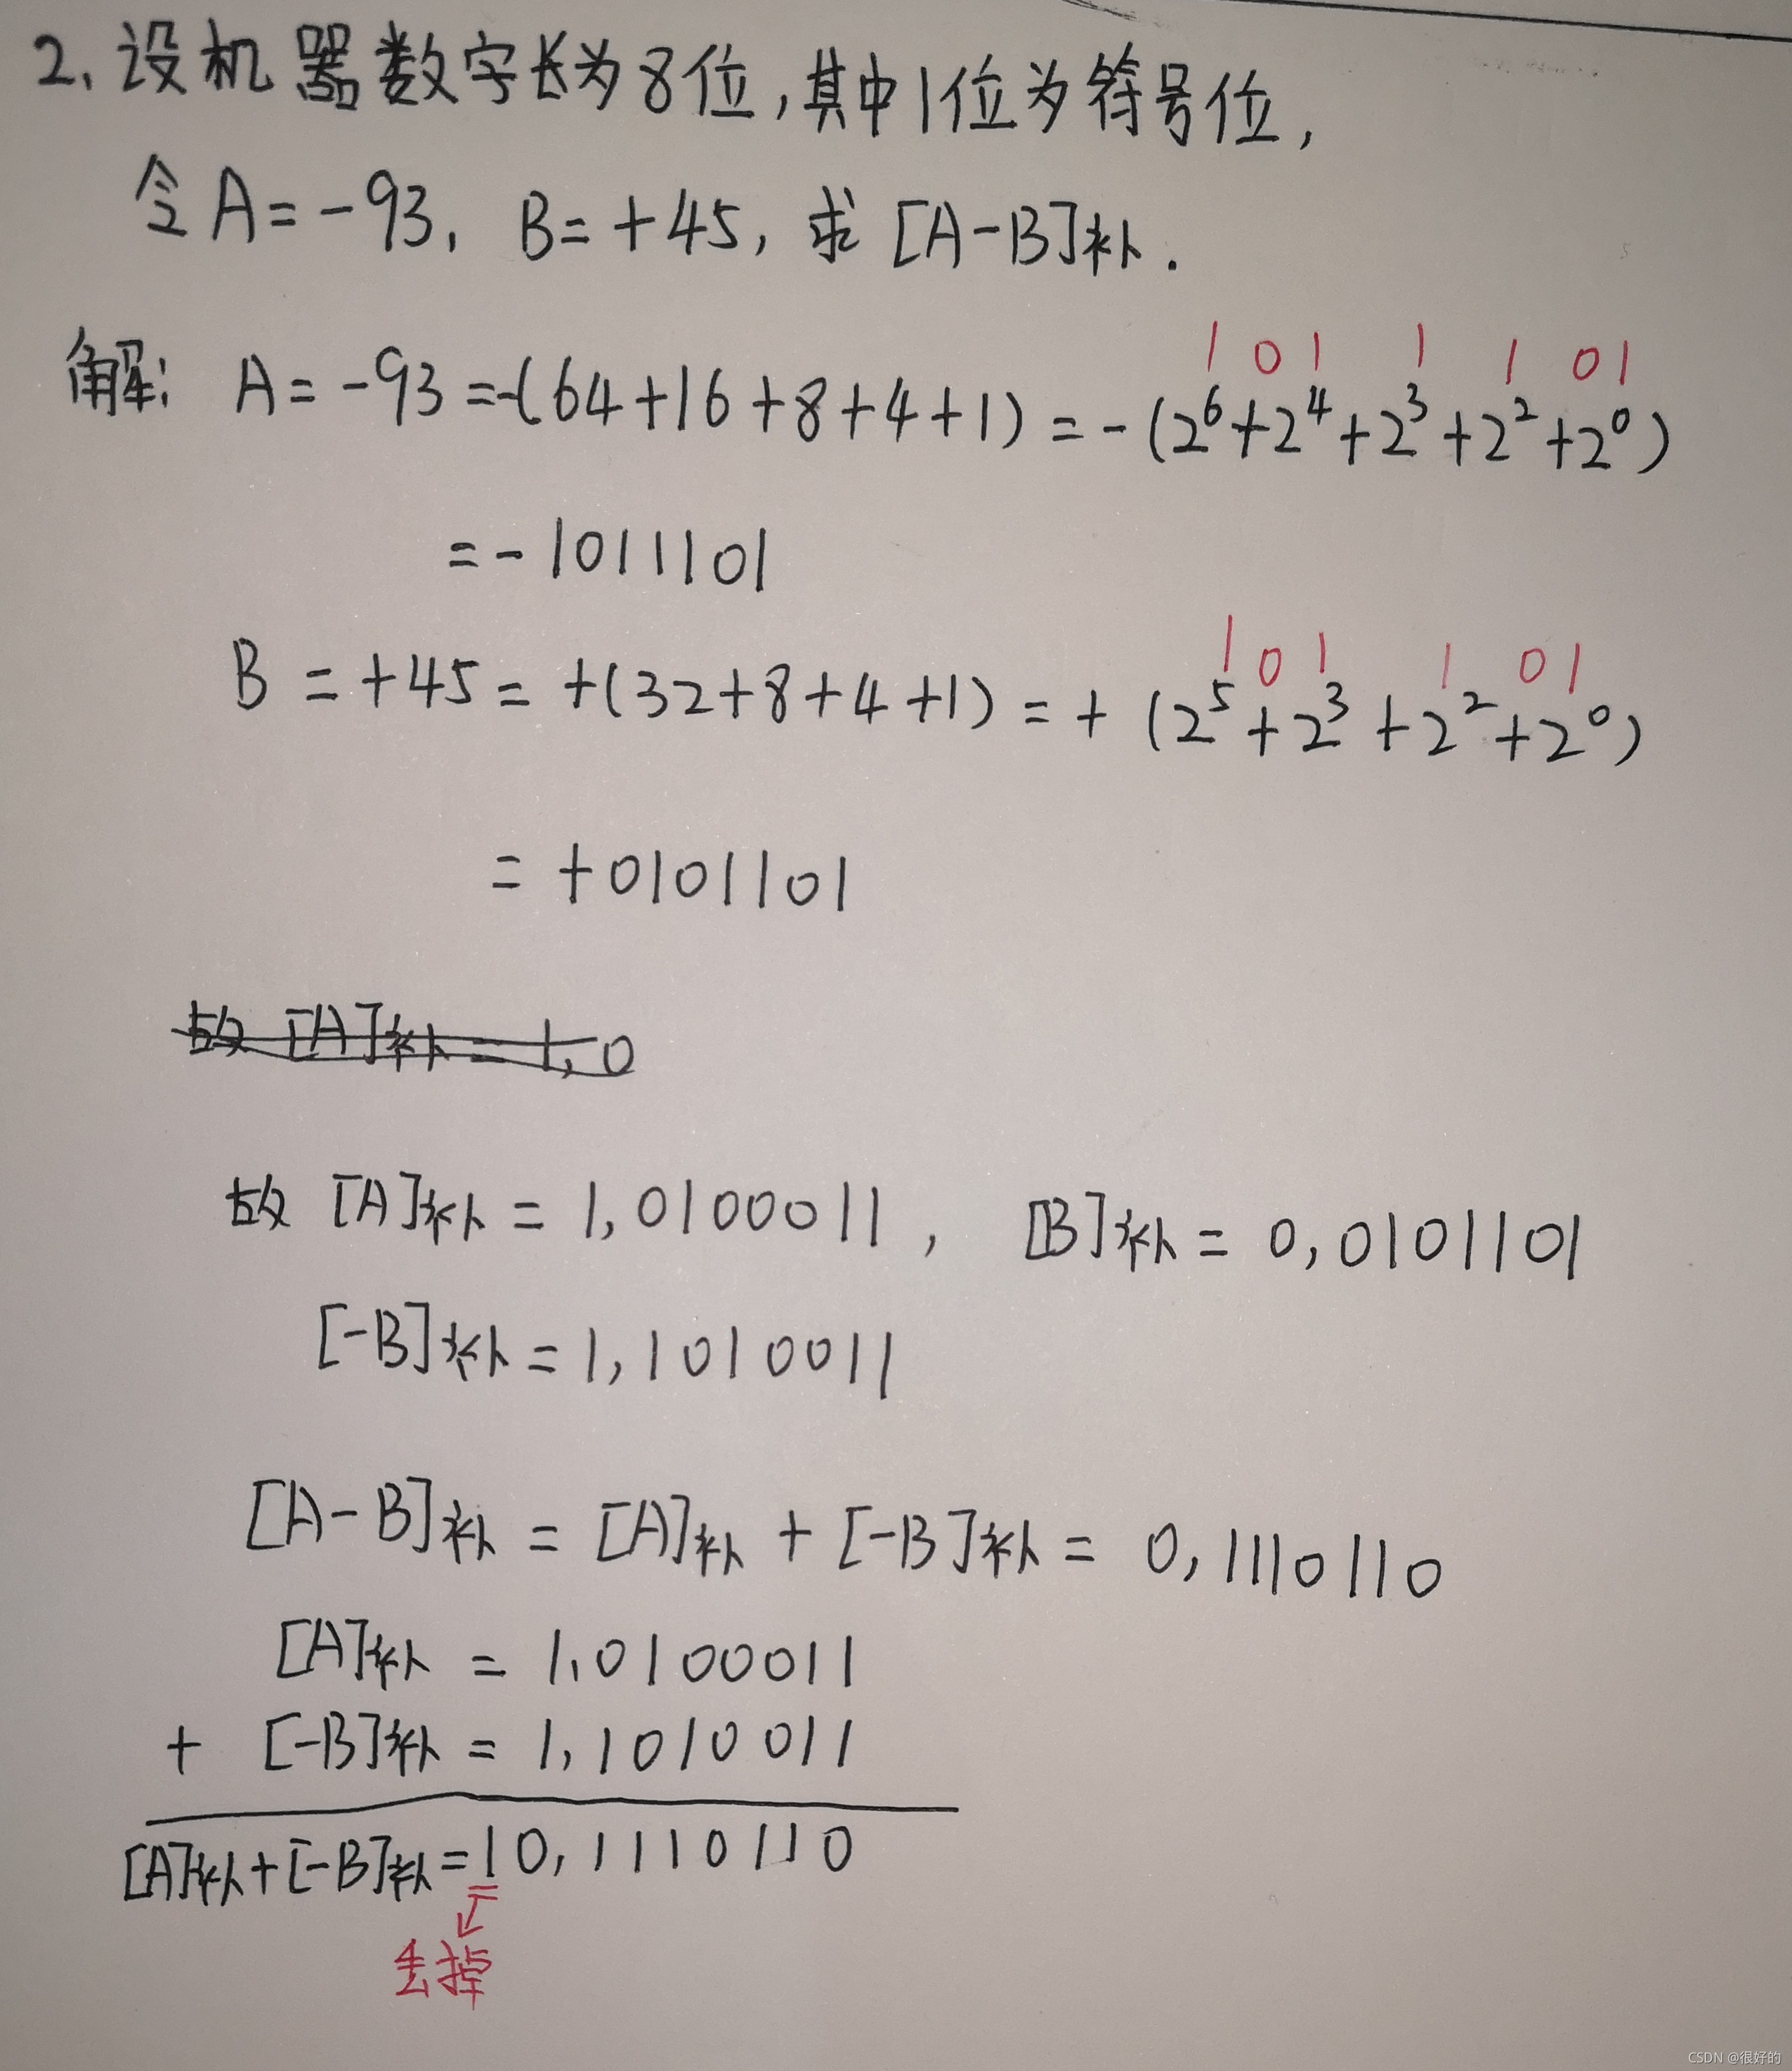 2. 设机器数字长为8位,其中1位为符号位,
令A=-93, B=+45, 求[A-B]补.
1 0 1 1 1 0 1
解: A=-93=-(64+16+8+4+1)=-(2⁶+2⁴+2³+2²+2⁰)
=-1011101
1 0 1 1 0 1
B=+45=+(32+8+4+1)=+(2⁵+2³+2²+2⁰)
=+0101101
故[A]补=1,0
故[A]补=1,0100011, [B]补=0,0101101
[-B]补=1,1010011
[A-B]补=[A]补+[-B]补=0,1110110
[A]补=1,0100011
+ [-B]补=1,1010011
[A]补+[-B]补=10,1110110
丢掉
CSDN @很好的